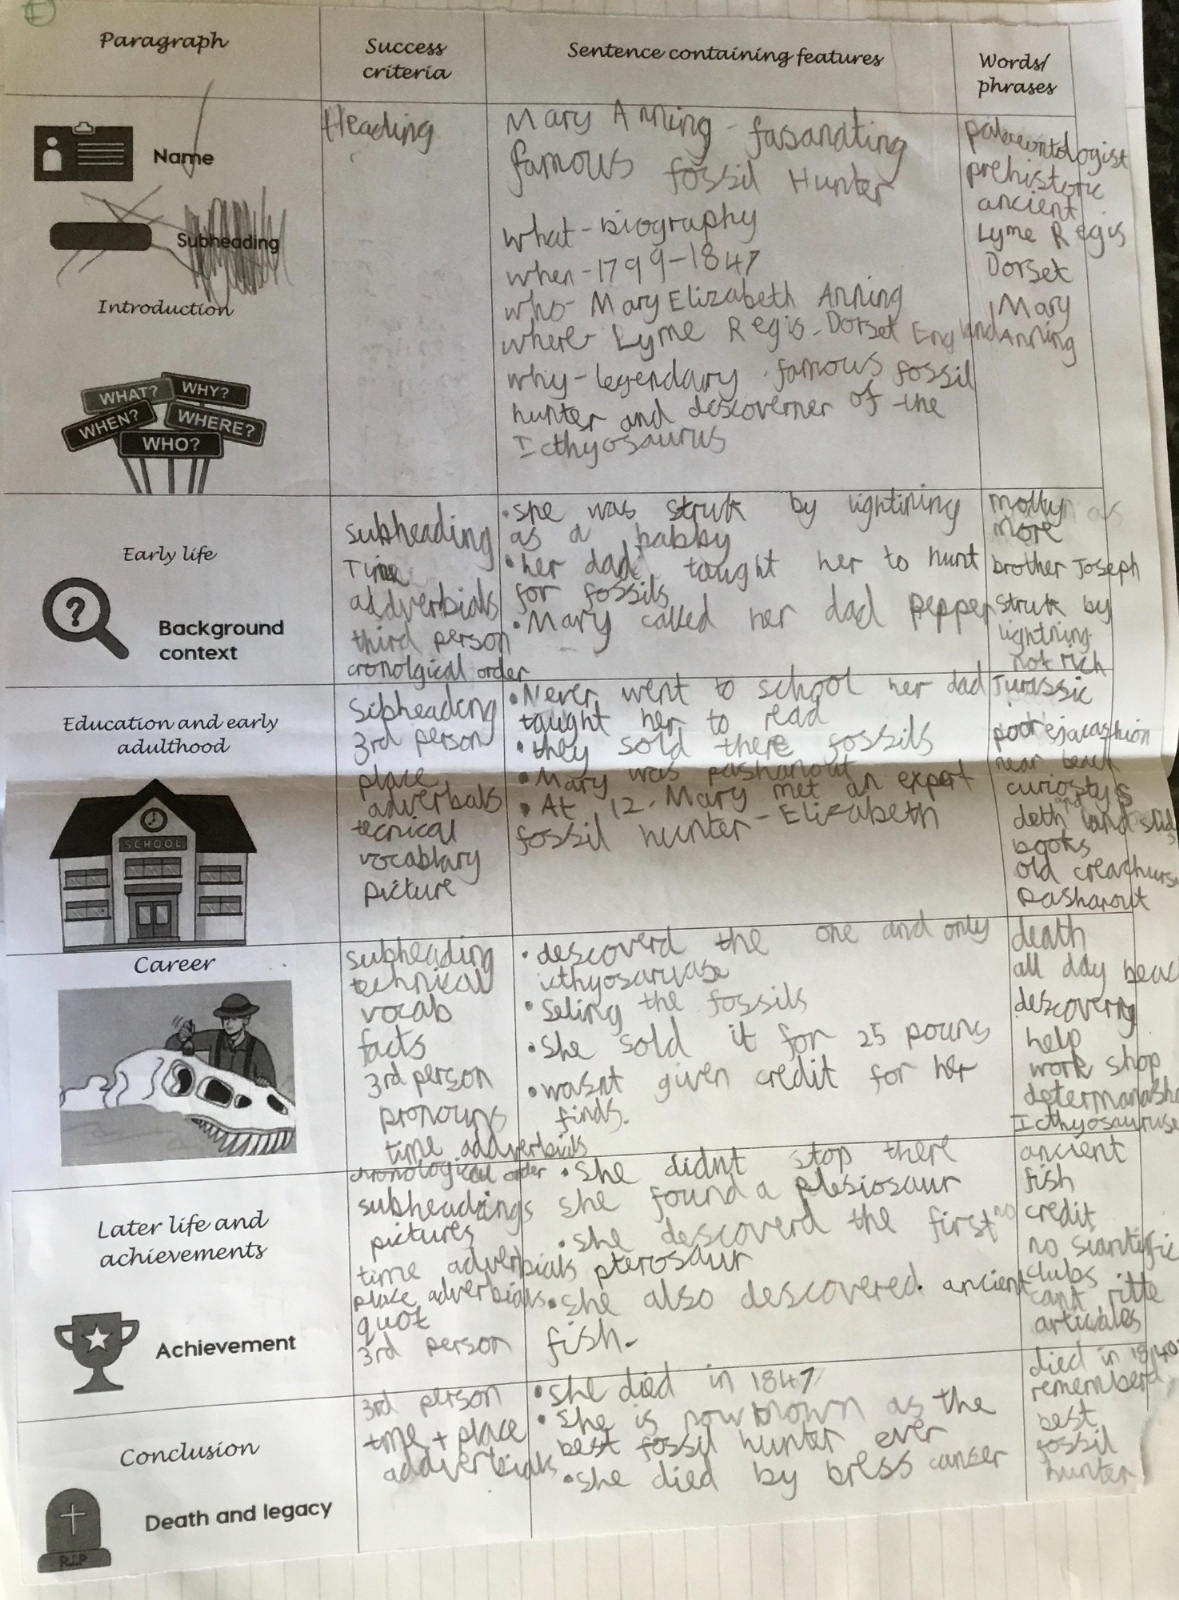 Paragraph
Success
criteria
Sentence containing features
Words/
phrases
Name
Subheading
Introduction
WHAT?
WHY?
WHEN?
WHERE?
WHO?
Heading
Mary Anning - fasanating
famous fossil Hunter
what - biography
when - 1799-1847
who - Mary Elizabeth Anning
where - Lyme Regis - Dorset England
why - legendary famous fossil
hunter and descoverner of the
Icthyosaurus
palaeontologist
prehistoric
ancient
Lyme Regis
Dorset
Mary
Anning
Early life
Background
context
subheading
Time
addverbials
third person
cronolgical order
• she was struk by lightining
as a babby
• her dad taught her to hunt
for fossils
• Mary called her dad pepper
molly
more
brother Joseph
struk by
lightning
not rich
Education and early
adulthood
SCHOOL
sibheading
3rd person
place
adverbals
tecnical
vocablary
picture
• Never went to school her dad
taught her to read
• they sold there fossils
• Mary was pashanout
• At 12. Mary met an expert
fossil hunter - Elizabeth
Jurassic
poor ejacashion
near beach
curiosty
deth and land
books
old creachurs
Pashanout
Career
subheading
technical
vocab
facts
3rd person
pronouns
time addverbials
chronological order
• descoverd the one and only
• Seling the fossils
• She sold it for 25 pouns
• wasnt given credit for her
finds.
death
all day beac
descovering
help
work shop
Later life and
achievements
Achievement
subheadings
pictures
time adverbials
place adverbials
quot
3rd person
• she didnt stop there
she found a plesiosaur
• she descoverd the first
pterosaur
• she also descovered ancient
fish.
ancient
fish
credit
no
clubs
cant ritte
articales
Conclusion
Death and legacy
R.I.P
3rd person
time + place
addverbials
• she died in 1847
• She is now known as the
best fossil hunter ever
• she died by bress canser
died in
rememberd
best
fossil
hunter